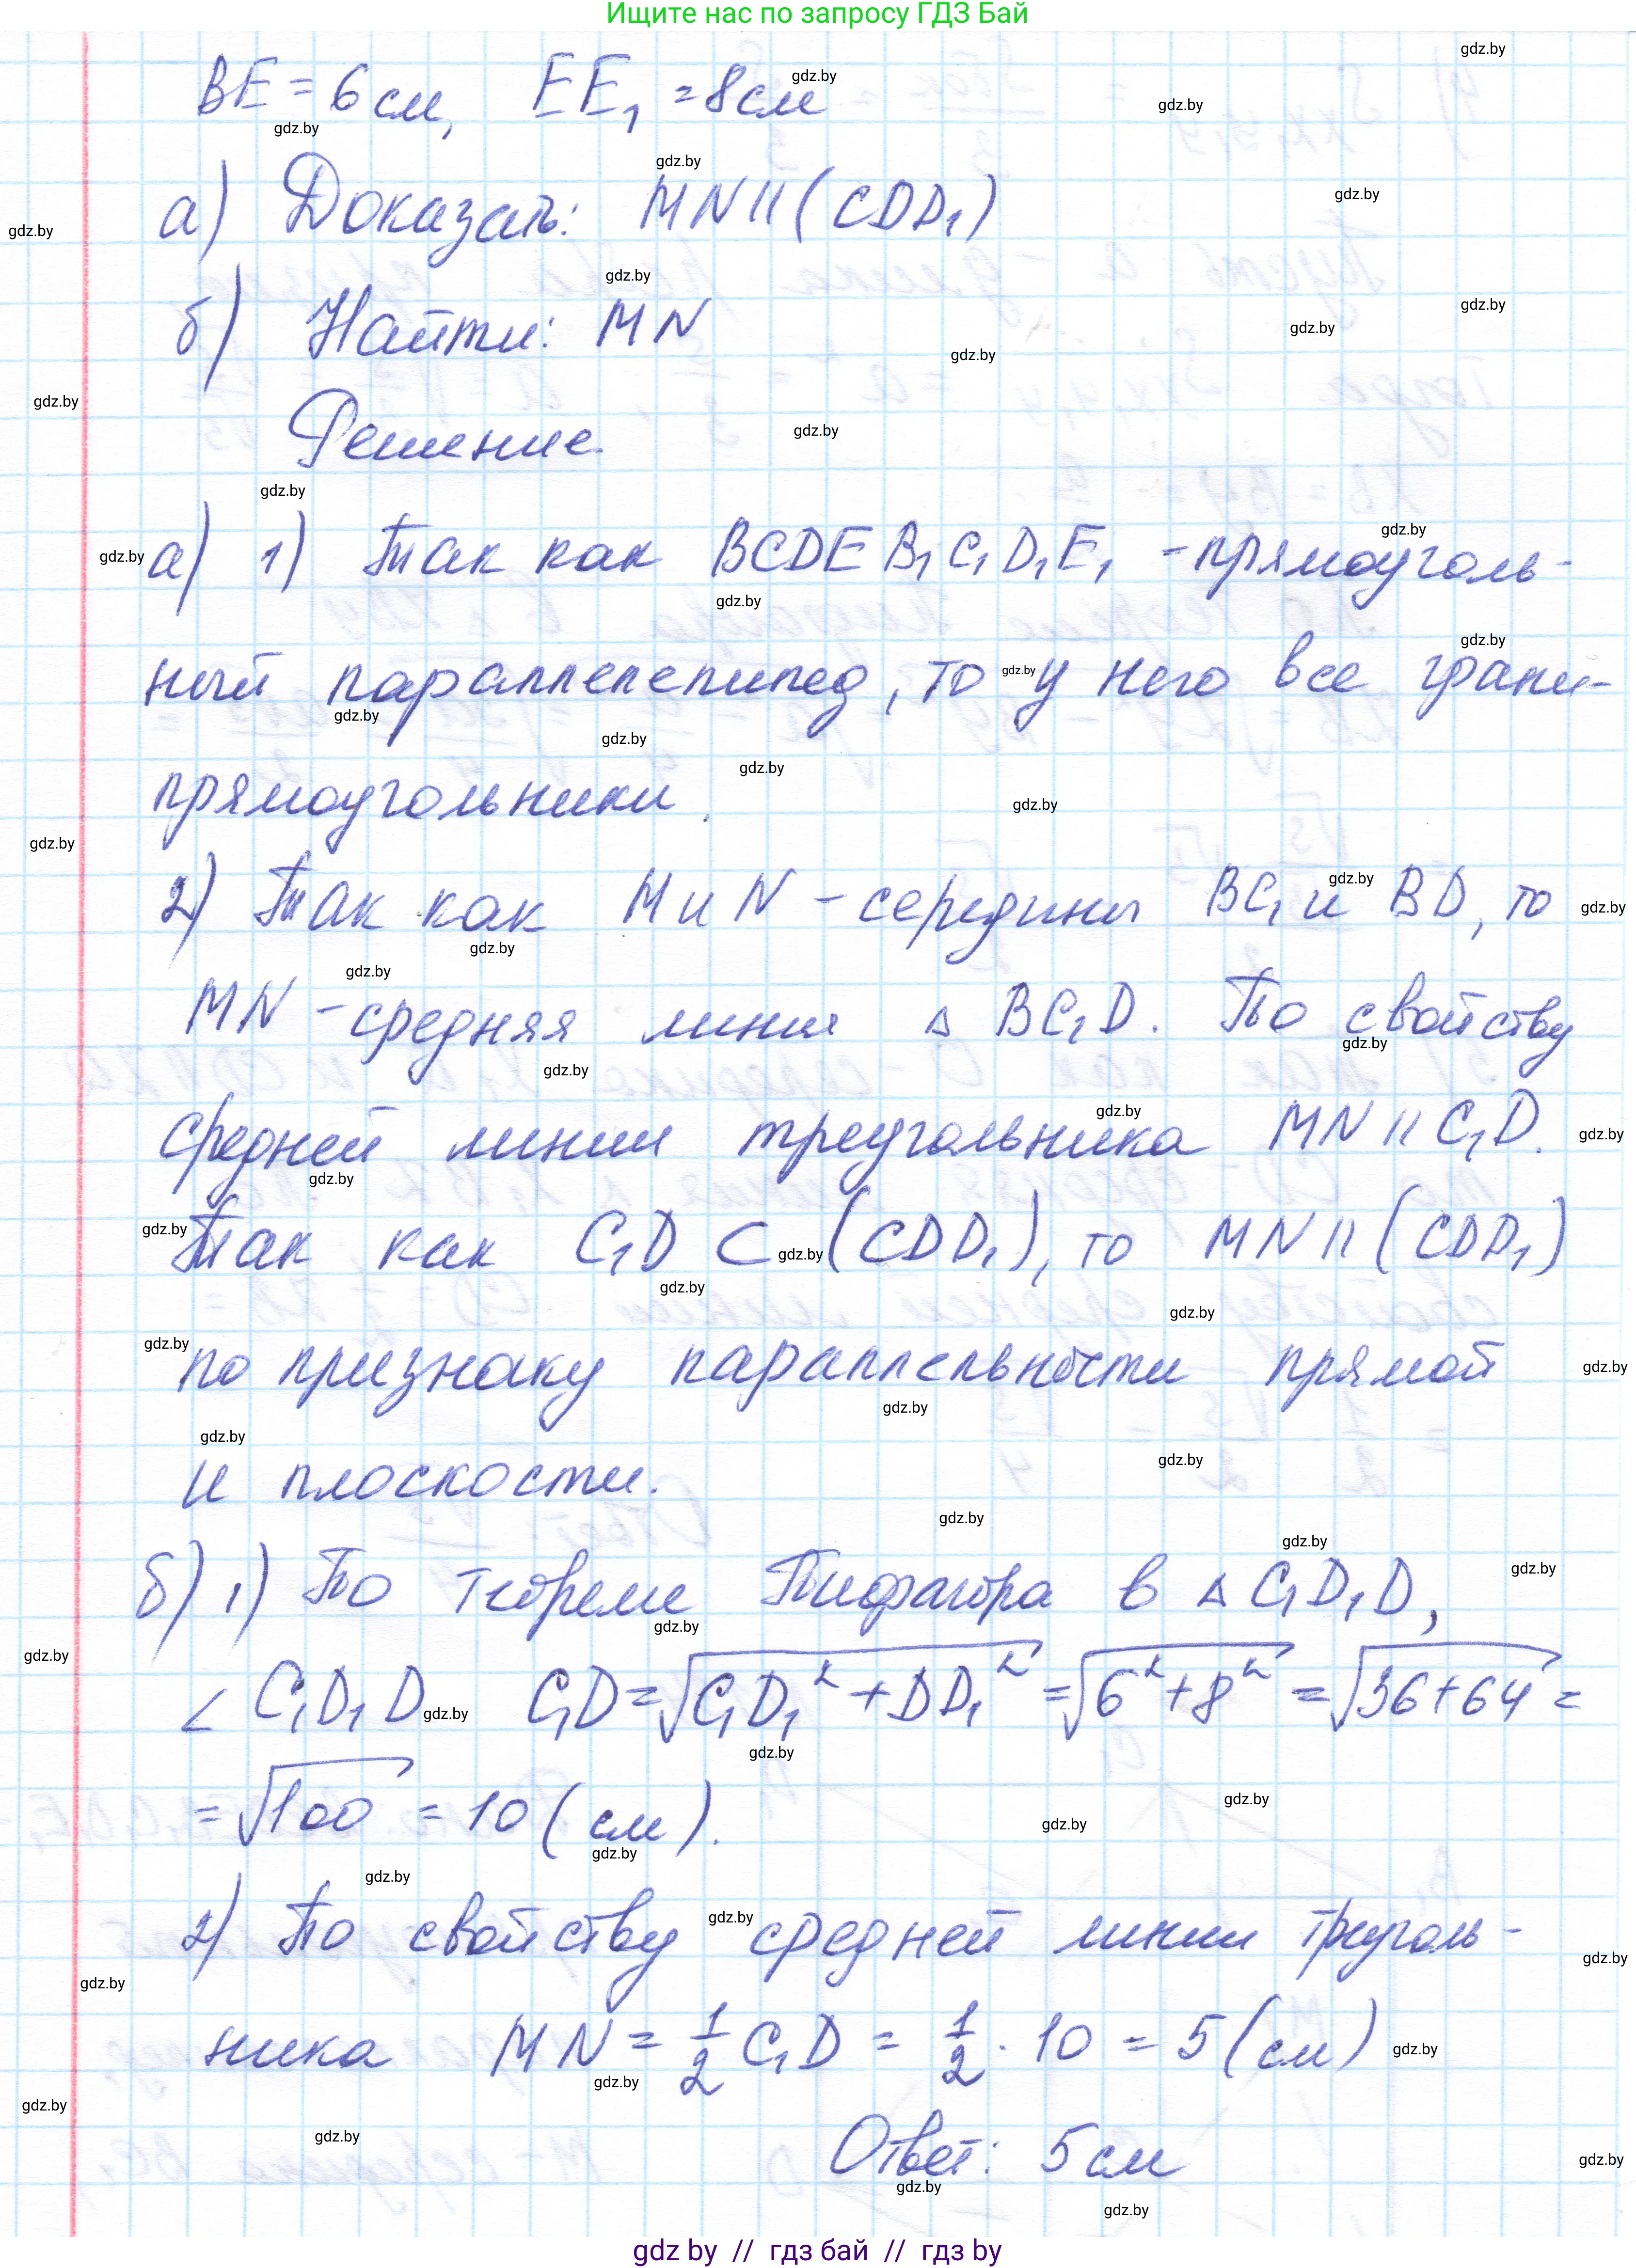 Ищите нас по запросу ГДЗ Бай
BE = 6 см, EE₁ = 8 см
а) Доказать: MN || (CDD₁)
б) Найти: MN
Решение.
а) 1) Так как BCDEB₁C₁D₁E₁ - прямоуголь-
ный параллелепипед, то у него все грани-
прямоугольники.
2) Так как M и N - середины BC₁ и BD, то
MN - средняя линия △ BC₁D. По свойству
средней линии треугольника MN || C₁D.
Так как C₁D ⊂ (CDD₁), то MN || (CDD₁)
по признаку параллельности прямой
и плоскости.
б) 1) По теореме Пифагора в △ C₁D₁D,
∠ C₁D₁D C₁D = √(C₁D₁² + DD₁²) = √(6² + 8²) = √(36 + 64) =
= √100 = 10 (см).
2) По свойству средней линии треуголь-
ника MN = 1/2 C₁D = 1/2 · 10 = 5 (см)
Ответ: 5 см
gdz by // гдз бай // гдз by